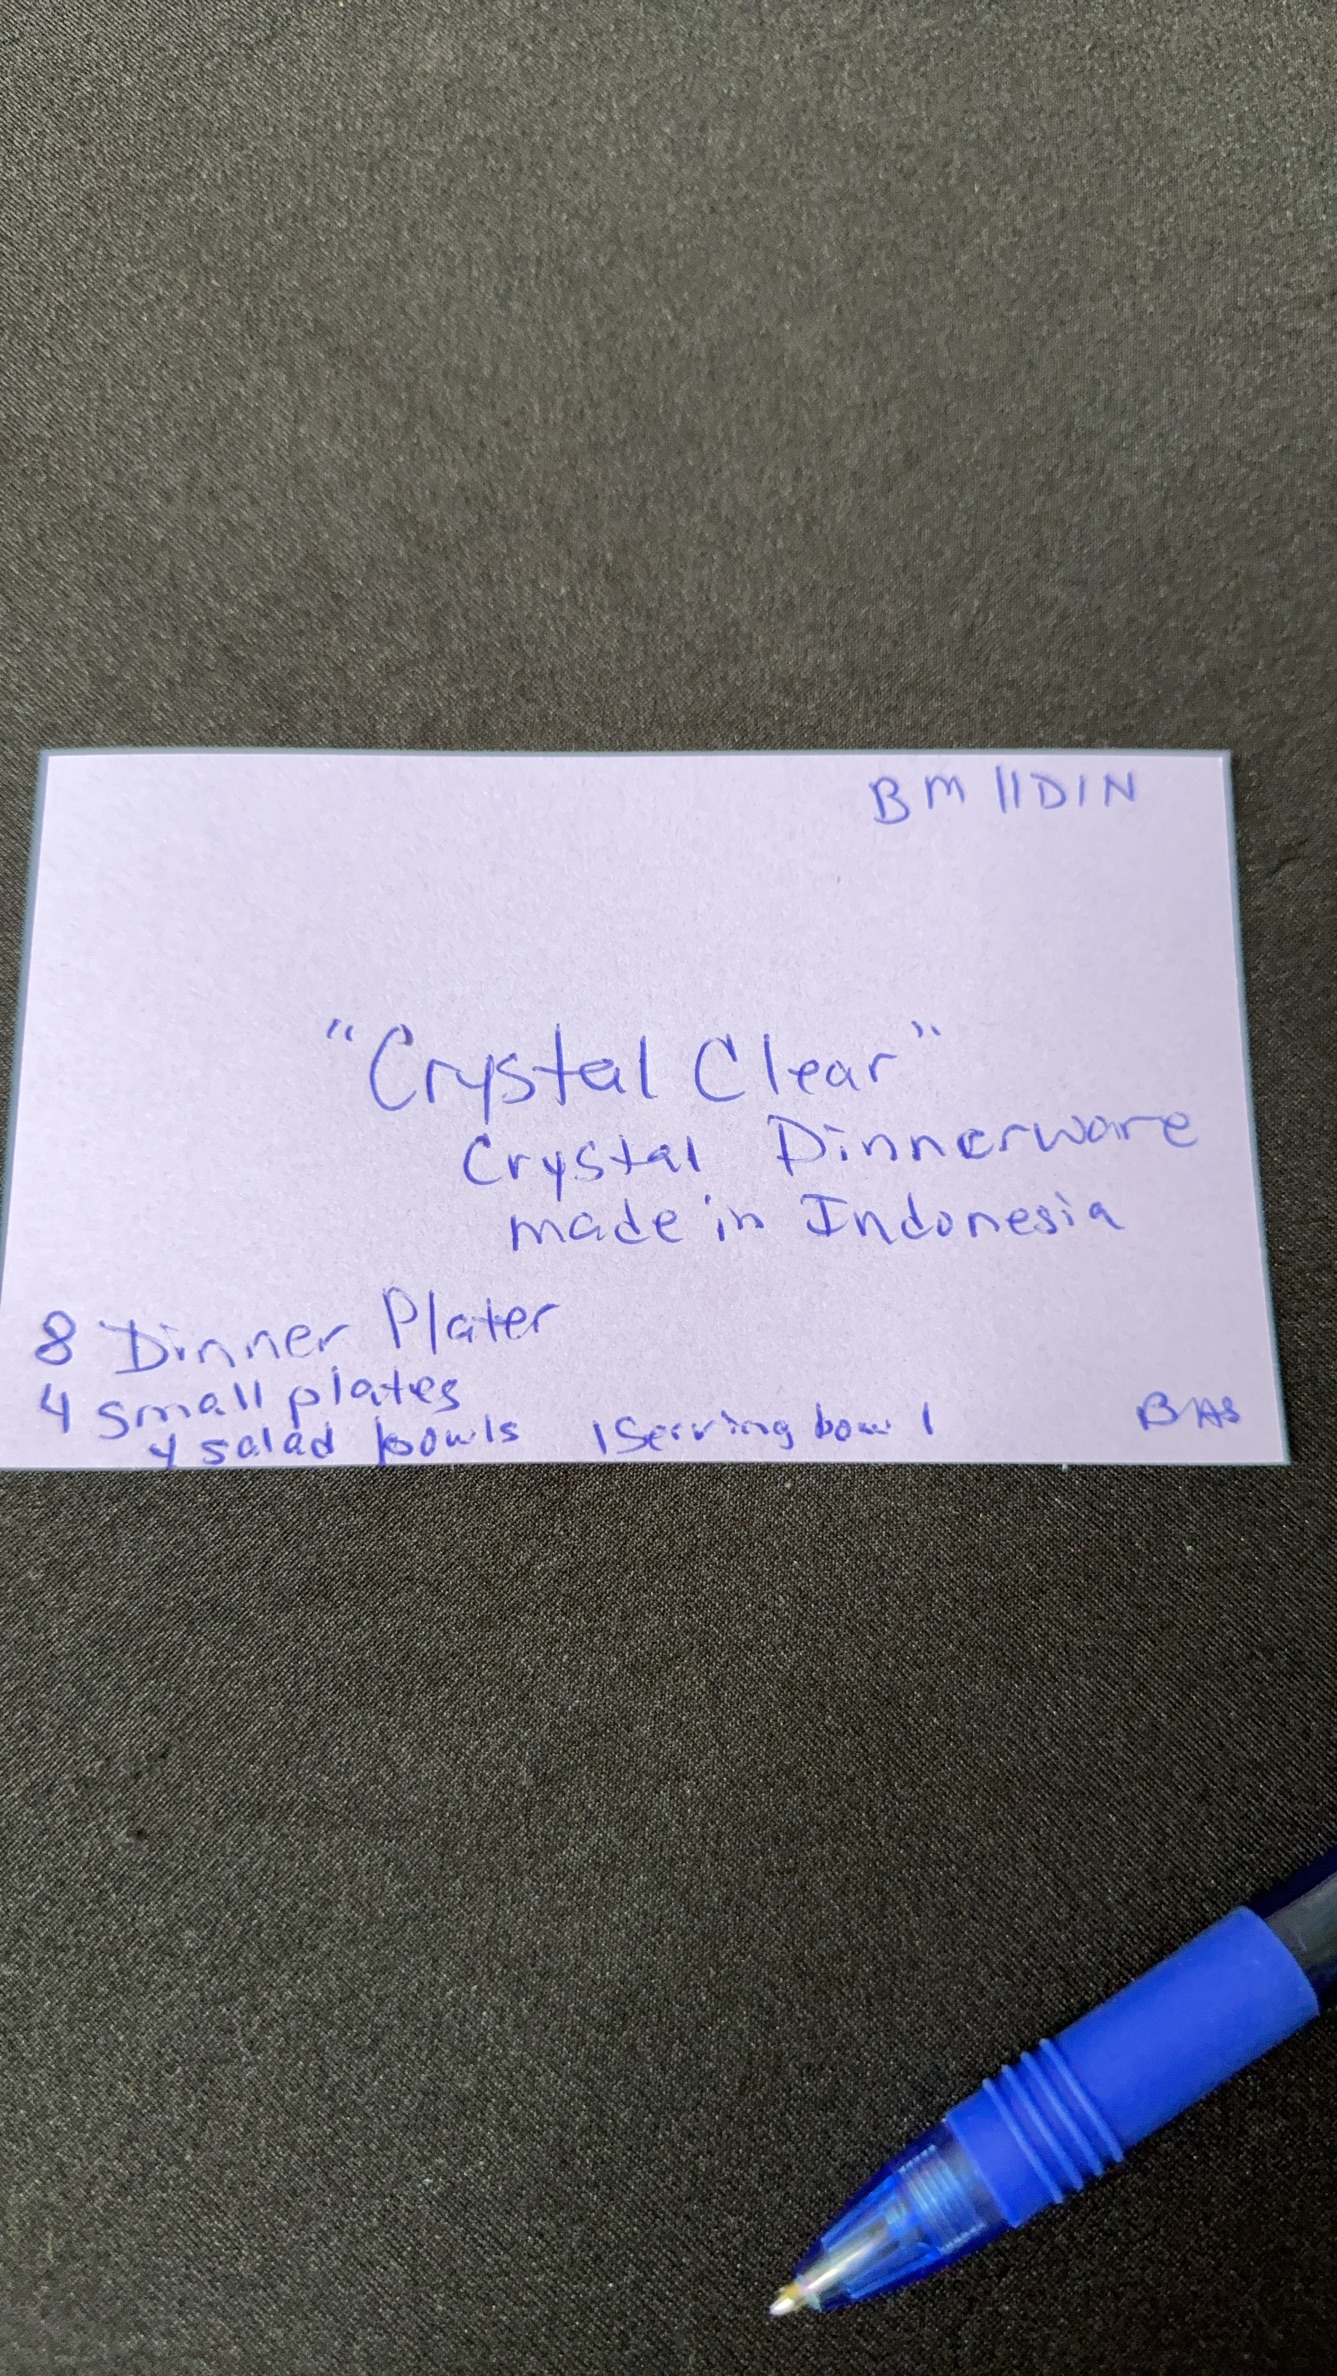 BM 11DIN
"Crystal Clear"
Crystal Dinnerware
made in Indonesia
8 Dinner Plater
4 small plates
4 salad bowls 1 Serving bowl